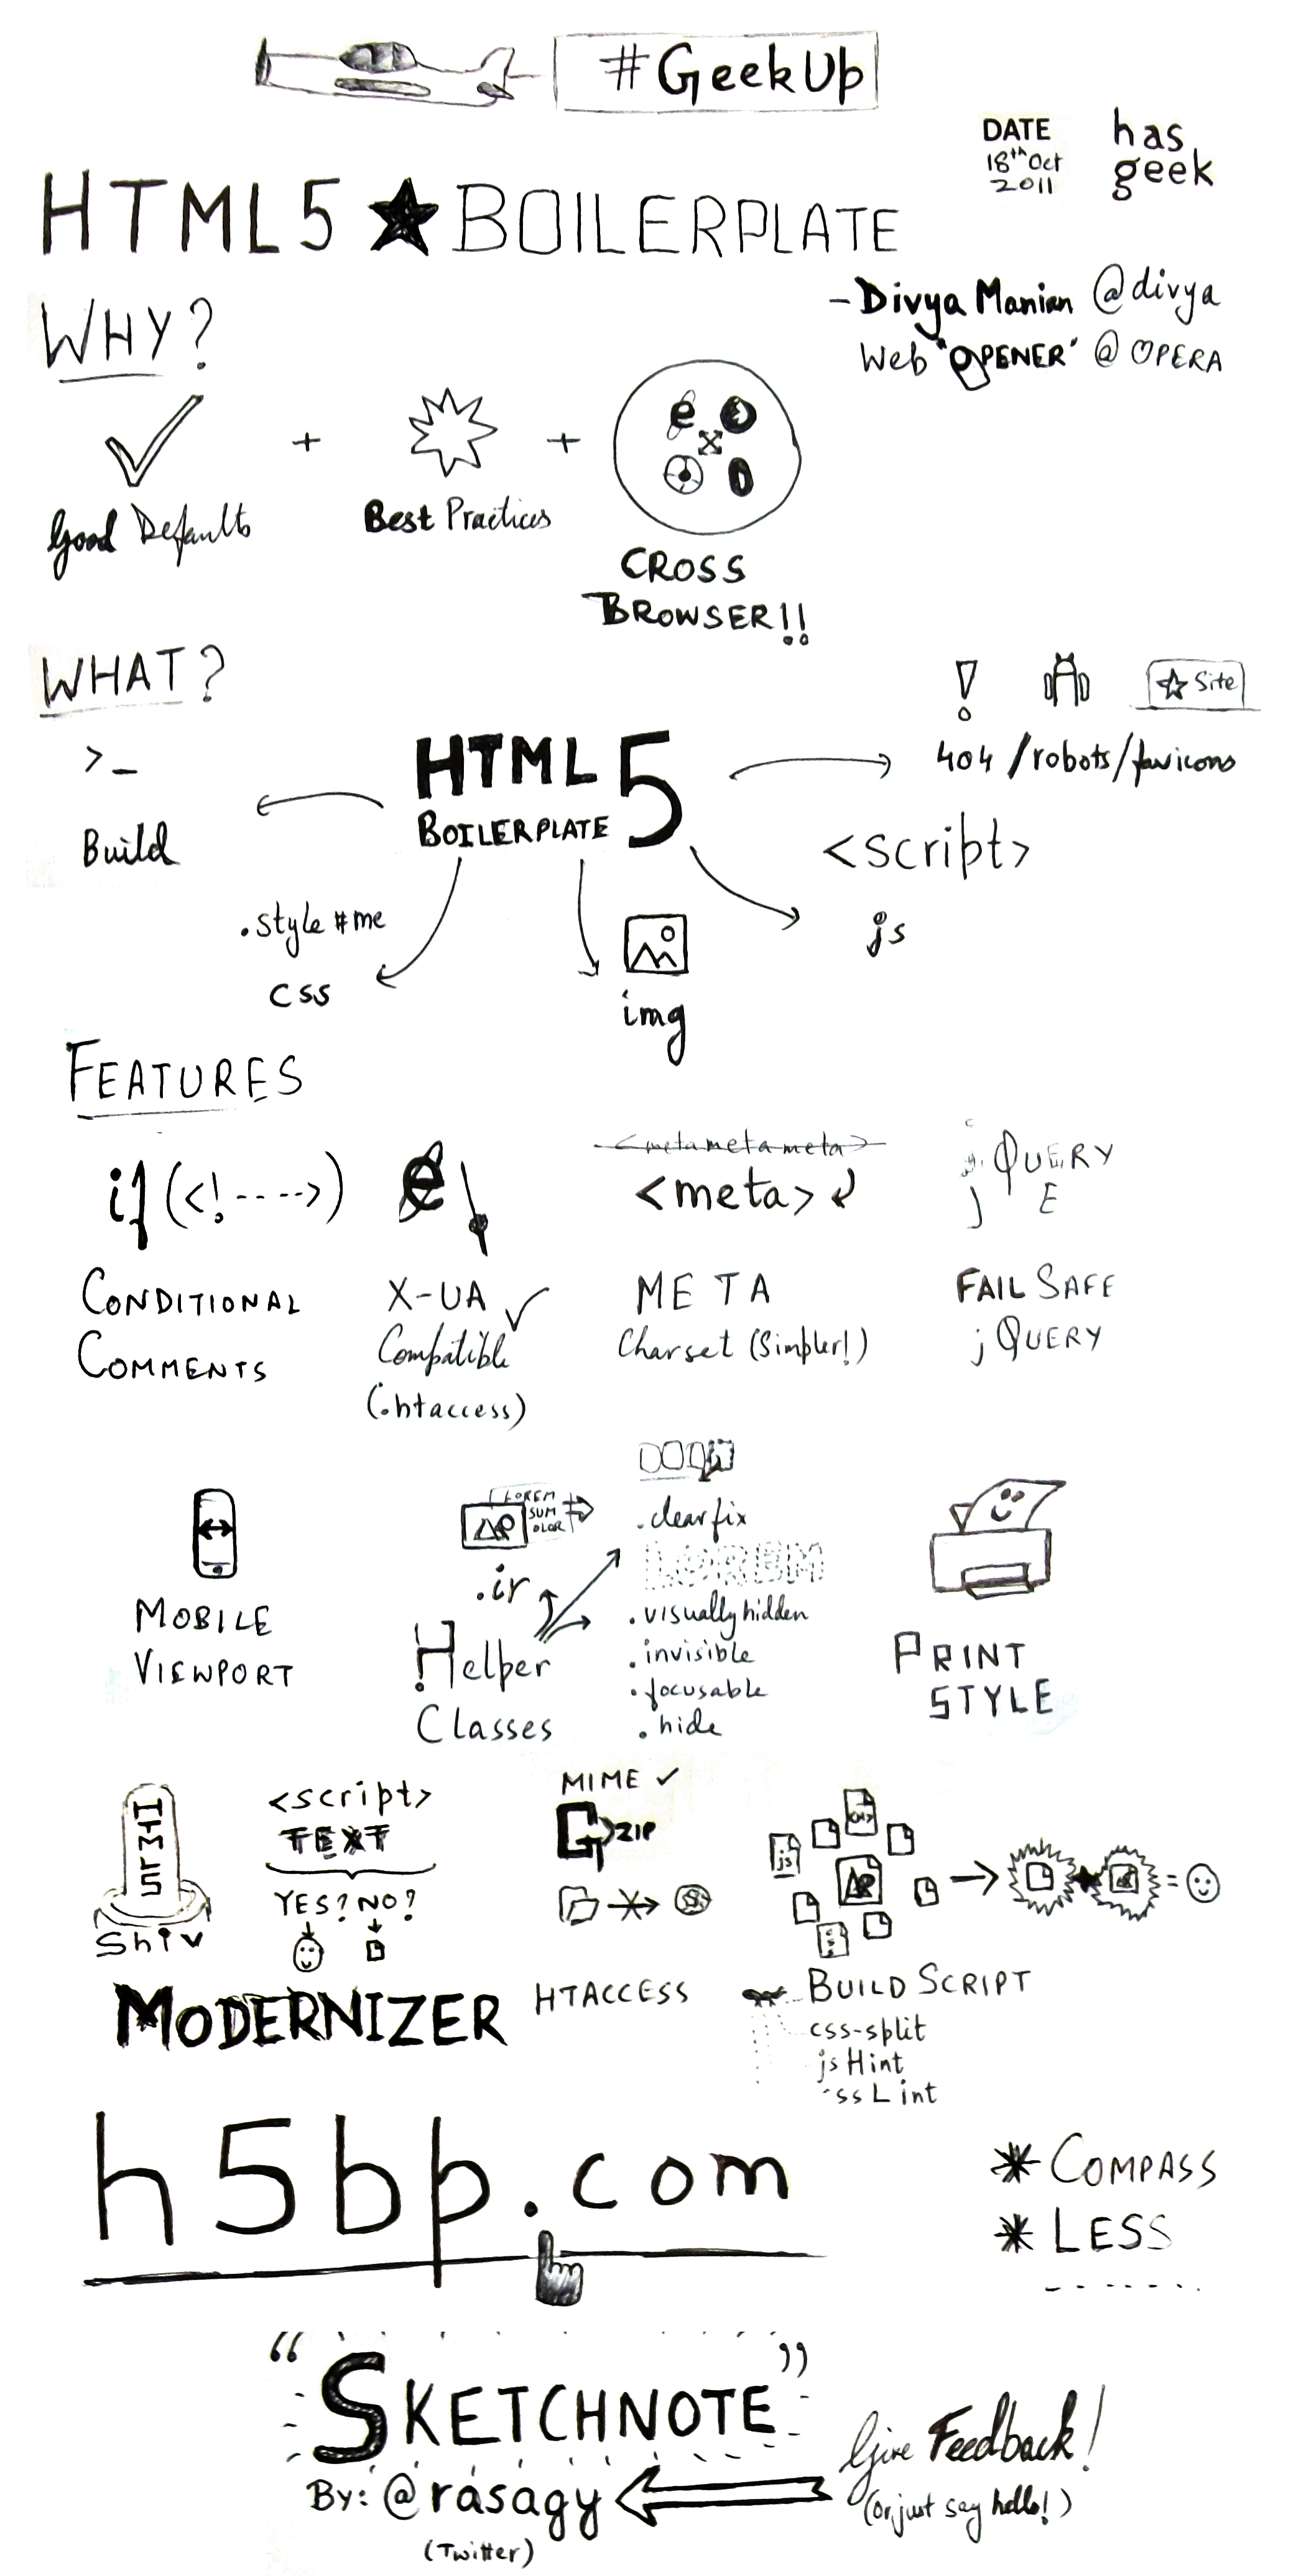 #GeekUp
DATE
18th Oct
2011
has
geek
HTML5 ★ BOILERPLATE
- Divya Manian @divya
Web "OPENER" @ OPERA
WHY?
+
+
Good Defaults
Best Practices
CROSS
BROWSER!!
WHAT?
☆ Site
>_
Build
HTML5
BOILERPLATE
404 /robots/favicons
<script>
js
.style #me
css
img
FEATURES
if (<! ---->)
e
<metametameta>
<meta>
jQUERY
j E
CONDITIONAL
COMMENTS
X-UA ✓
Compatible
(.htaccess)
META
Charset (Simpler!)
FAIL SAFE
jQUERY
MOBILE
VIEWPORT
LOREM
SUM
OLOR
.ir
Helper
Classes
.clearfix
LOREM
.visuallyhidden
.invisible
.focusable
.hide
PRINT
STYLE
HTML5
Shiv
<script>
TEXT
YES? NO?
MODERNIZER
MIME ✓
GZIP
HTACCESS
js
=
BUILD SCRIPT
css-split
jsHint
ssLint
h5bp.com
* COMPASS
* LESS
"SKETCHNOTE"
By: @rasagy
(Twitter)
Give Feedback!
(Or, just say hello!)